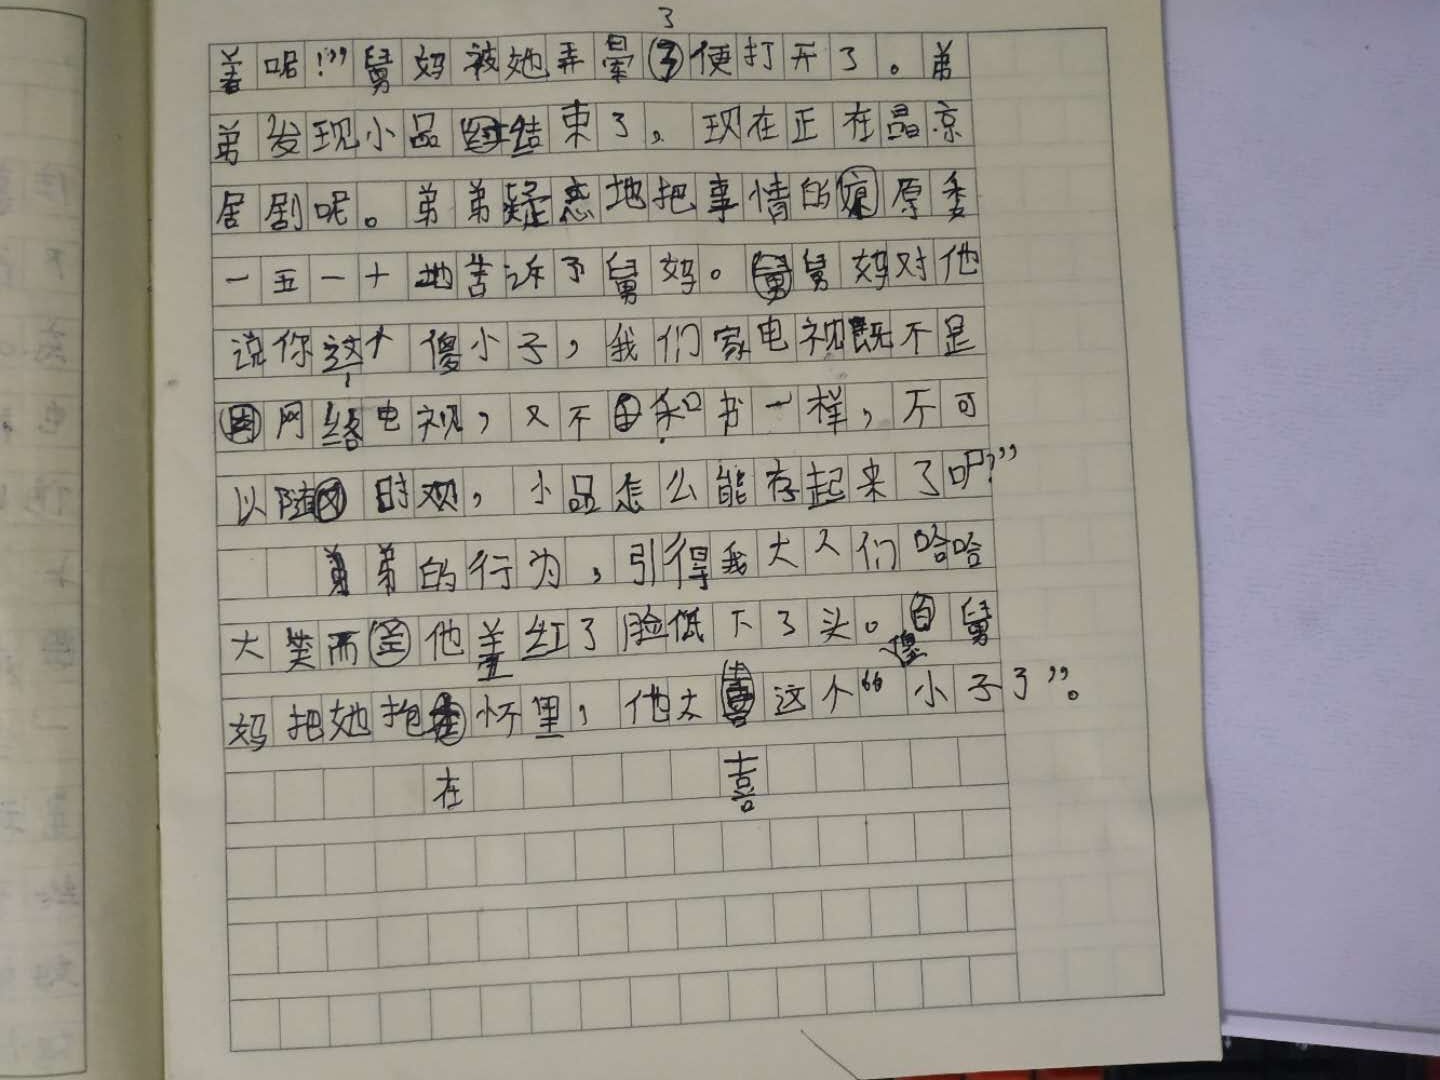 着呢!”舅妈被她弄晕了便打开了。弟
弟发现小品结束了。现在正在品京
居剧呢。弟弟疑惑地把事情的原委
一五一十地告诉了舅妈。舅妈对他
说你这个傻小子,我们家电视既不是
网络电视,又不和书一样,不可
以随时观,小品怎么能存起来了呢?”
弟弟的行为,引得我大人们哈哈
大笑而他羞红了脸低下了头。舅
妈把她抱在怀里,他太喜这个“傻小子了”。